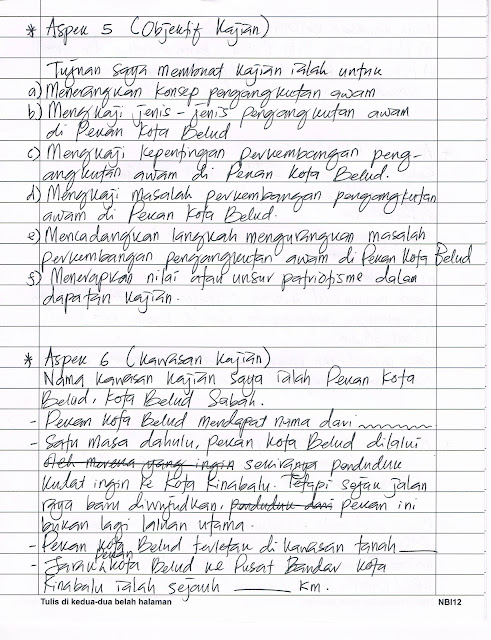 * Aspek 5 (Objektif Kajian)
Tujuan saya membuat kajian ialah untuk
a) Menerangkan konsep pengangkutan awam
b) Mengkaji jenis-jenis pengangkutan awam
di Pekan Kota Belud
c) Mengkaji kepentingan perkembangan peng-
angkutan awam di Pekan Kota Belud.
d) Mengkaji masalah perkembangan pengangkutan
awam di Pekan Kota Belud.
e) Mencadangkan langkah mengurangkan masalah
perkembangan pengangkutan awam di Pekan Kota Belud
f) Menerapkan nilai atau unsur patriotisme dalam
dapatan kajian.
* Aspek 6 (Kawasan Kajian)
Nama kawasan kajian saya ialah Pekan Kota
Belud, Kota Belud Sabah.
- Pekan Kota Belud mendapat nama dari
- Satu masa dahulu, pekan Kota Belud dilalui
oleh mereka yang ingin sekiranya penduduk
Kudat ingin ke Kota Kinabalu. Tetapi sejak jalan
raya baru diwujudkan, penduduk dari pekan ini
bukan lagi laluan utama.
- Pekan Kota Belud terletak di kawasan tanah ____
- Jarak pekan Kota Belud ke Pusat Bandar Kota
Kinabalu ialah sejauh ____ km.
Tulis di kedua-dua belah halaman NBI12